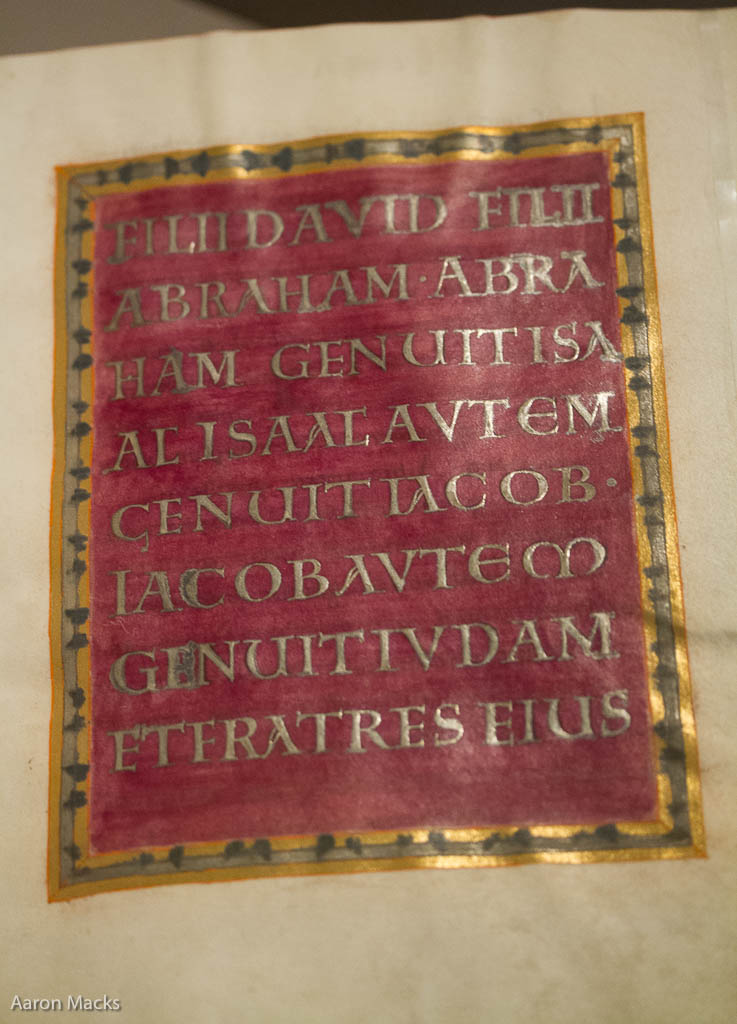 FILII DAVID FILII
ABRAHAM · ABRA
HAM GENUIT ISA
AC ISAAC AVTEM
GENUIT IACOB ·
IACOB AVTEM
GENUIT IVDAM
ET FRATRES EIUS
Aaron Macks